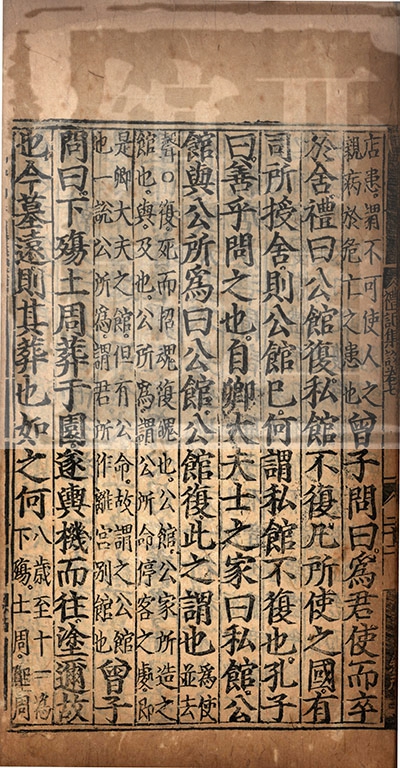 店患謂不可使人之
親病於危亡之患也
曾子問曰爲君使而卒
於舍禮曰公館復私館不復凡所使之國有
司所授舍則公館已何謂私館不復也孔子
曰善乎問之也自卿大夫士之家曰私館公
館與公所爲曰公館公館復此之謂也
爲使
並去
聲○復死而招魂復魄也公館公家所造之
館也與及也公所爲謂公所命停客之處即
是卿大夫之館但有公命故謂之公館
也一說公所爲謂君所作離宮別館也
曾子
問曰下殤土周葬于園遂輿機而往塗邇故
也今墓遠則其葬也如之何
八歲至十一爲
下殤土周堲周